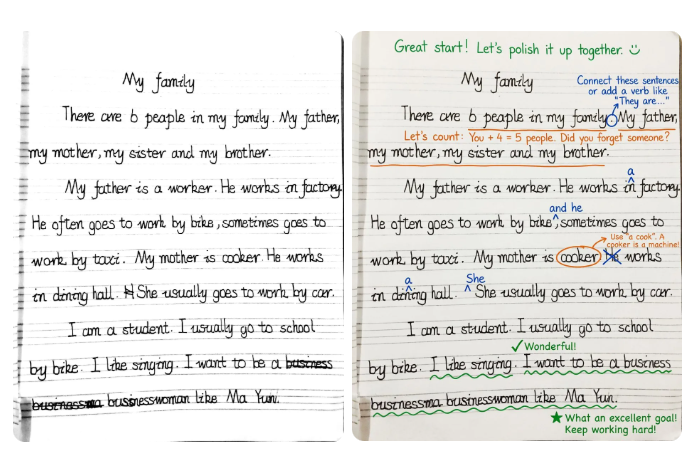 My family
There are 6 people in my family. My father,
my mother, my sister and my brother.
My father is a worker. He works in factory.
He often goes to work by bike, sometimes goes to
work by taxi. My mother is cooker. He works
in dining hall. She usually goes to work by car.
I am a student. I usually go to school
by bike. I like singing. I want to be a business
businessma businesswoman like Ma Yun.
Great start! Let's polish it up together.
My family
Connect these sentences
or add a verb like
"They are..."
There are 6 people in my family. My father,
Let's count: You + 4 = 5 people. Did you forget someone?
my mother, my sister and my brother.
a
My father is a worker. He works in factory.
and he
He often goes to work by bike, sometimes goes to
Use "a cook". A
cooker is a machine!
work by taxi. My mother is cooker. He works
a She
in dining hall. She usually goes to work by car.
I am a student. I usually go to school
✓ Wonderful!
by bike. I like singing. I want to be a business
businessma businesswoman like Ma Yun.
★ What an excellent goal!
Keep working hard!